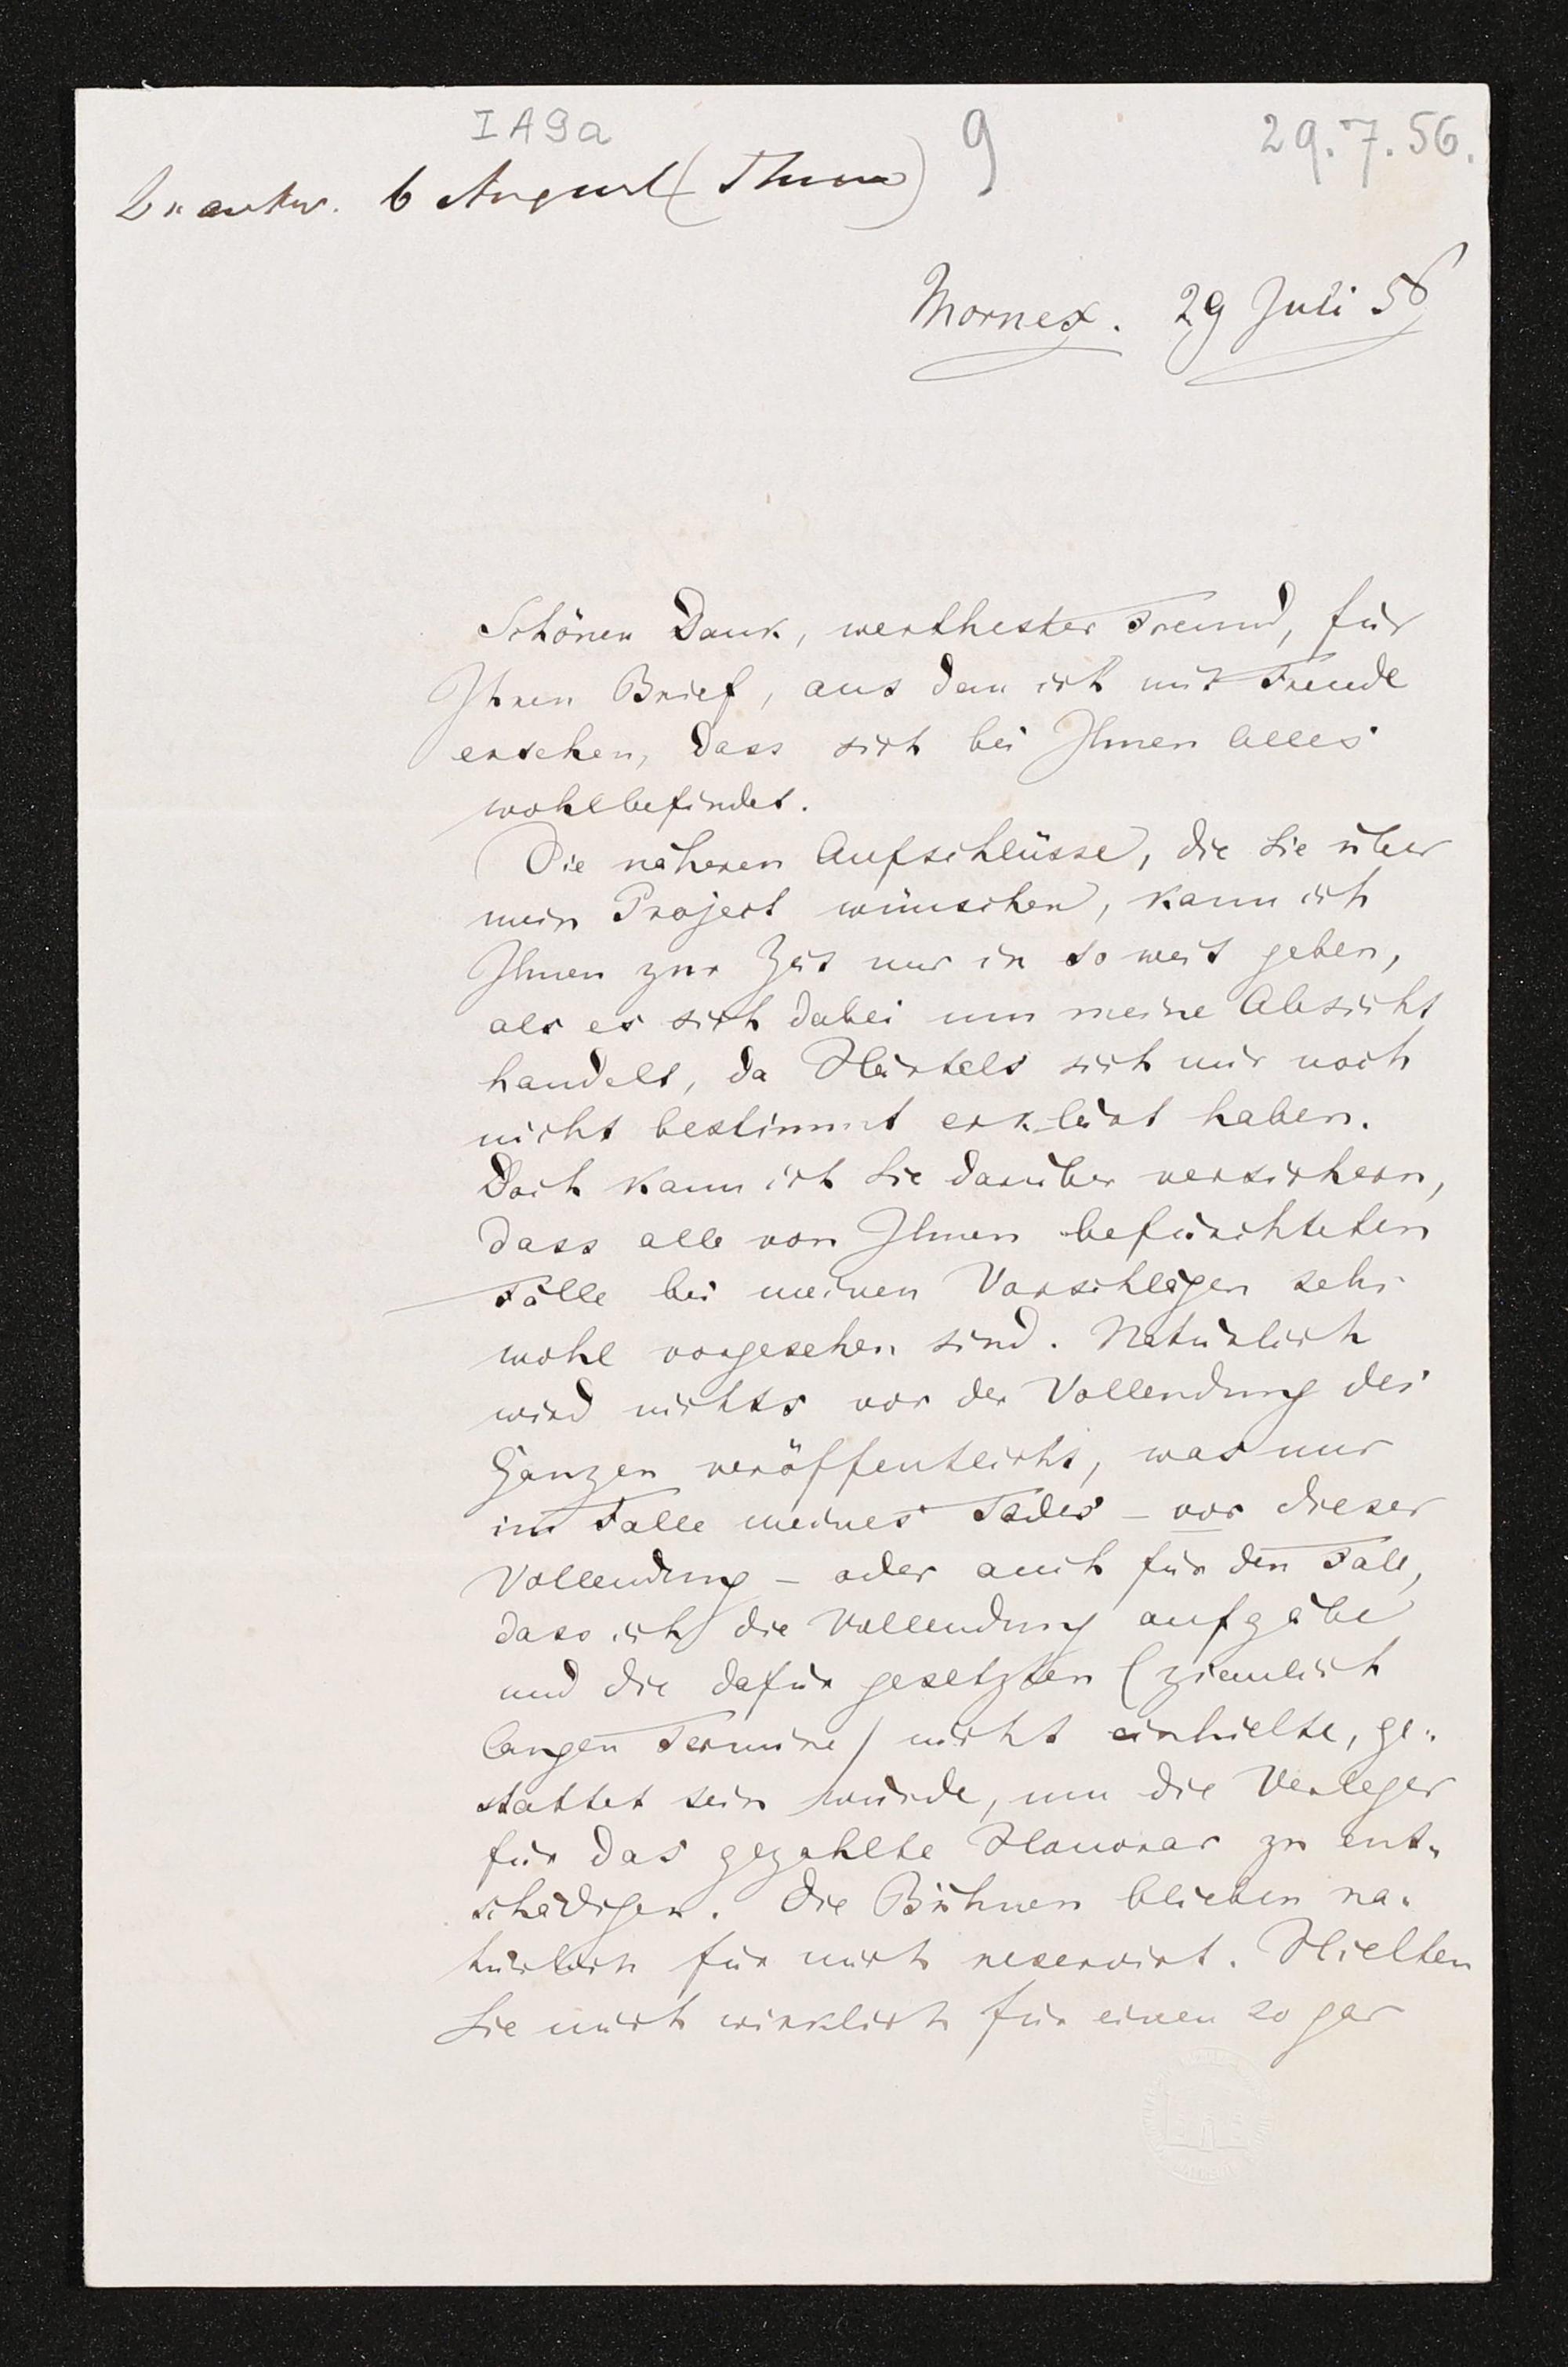 I A 9 a
9
29.7.56.
beantw. 6 August (Thun)
Mornex. 29 Juli 56
Schönen Dank, werthester Freund, für
Ihren Brief, aus dem ich mit Freude
ersehen, dass sich bei Ihnen Alles
wohlbefindet.
Die näheren Aufschlüsse, die Sie über
mein Project wünschen, kann ich
Ihnen zur Zeit nur in so weit geben,
als es sich dabei um meine Absicht
handelt, da Härtels sich mir noch
nicht bestimmt erklärt haben.
Doch kann ich Sie darüber versichern,
dass alle von Ihnen befürchteten
Fälle bei meinen Vorschlägen sehr
wohl vorgesehen sind. Natürlich
wird nichts vor der Vollendung des
Ganzen veröffentlicht, was nur
im Falle meines Todes – vor dieser
Vollendung – oder auch für den Fall,
dass ich die Vollendung aufgäbe
und die dafür gesetzten (ziemlich
langen Termine) nicht einhielte, ge-
stattet sein würde, um die Verleger
für das gezahlte Honorar zu ent-
schädigen. Die Bühnen blieben na-
türlich für mich reservirt. Hielten
Sie mich wirklich für einen so gar